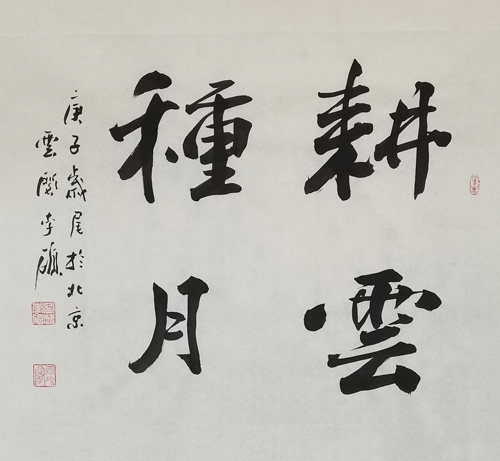 耕雲
種月
庚子歲尾於北京
雲壑李碩